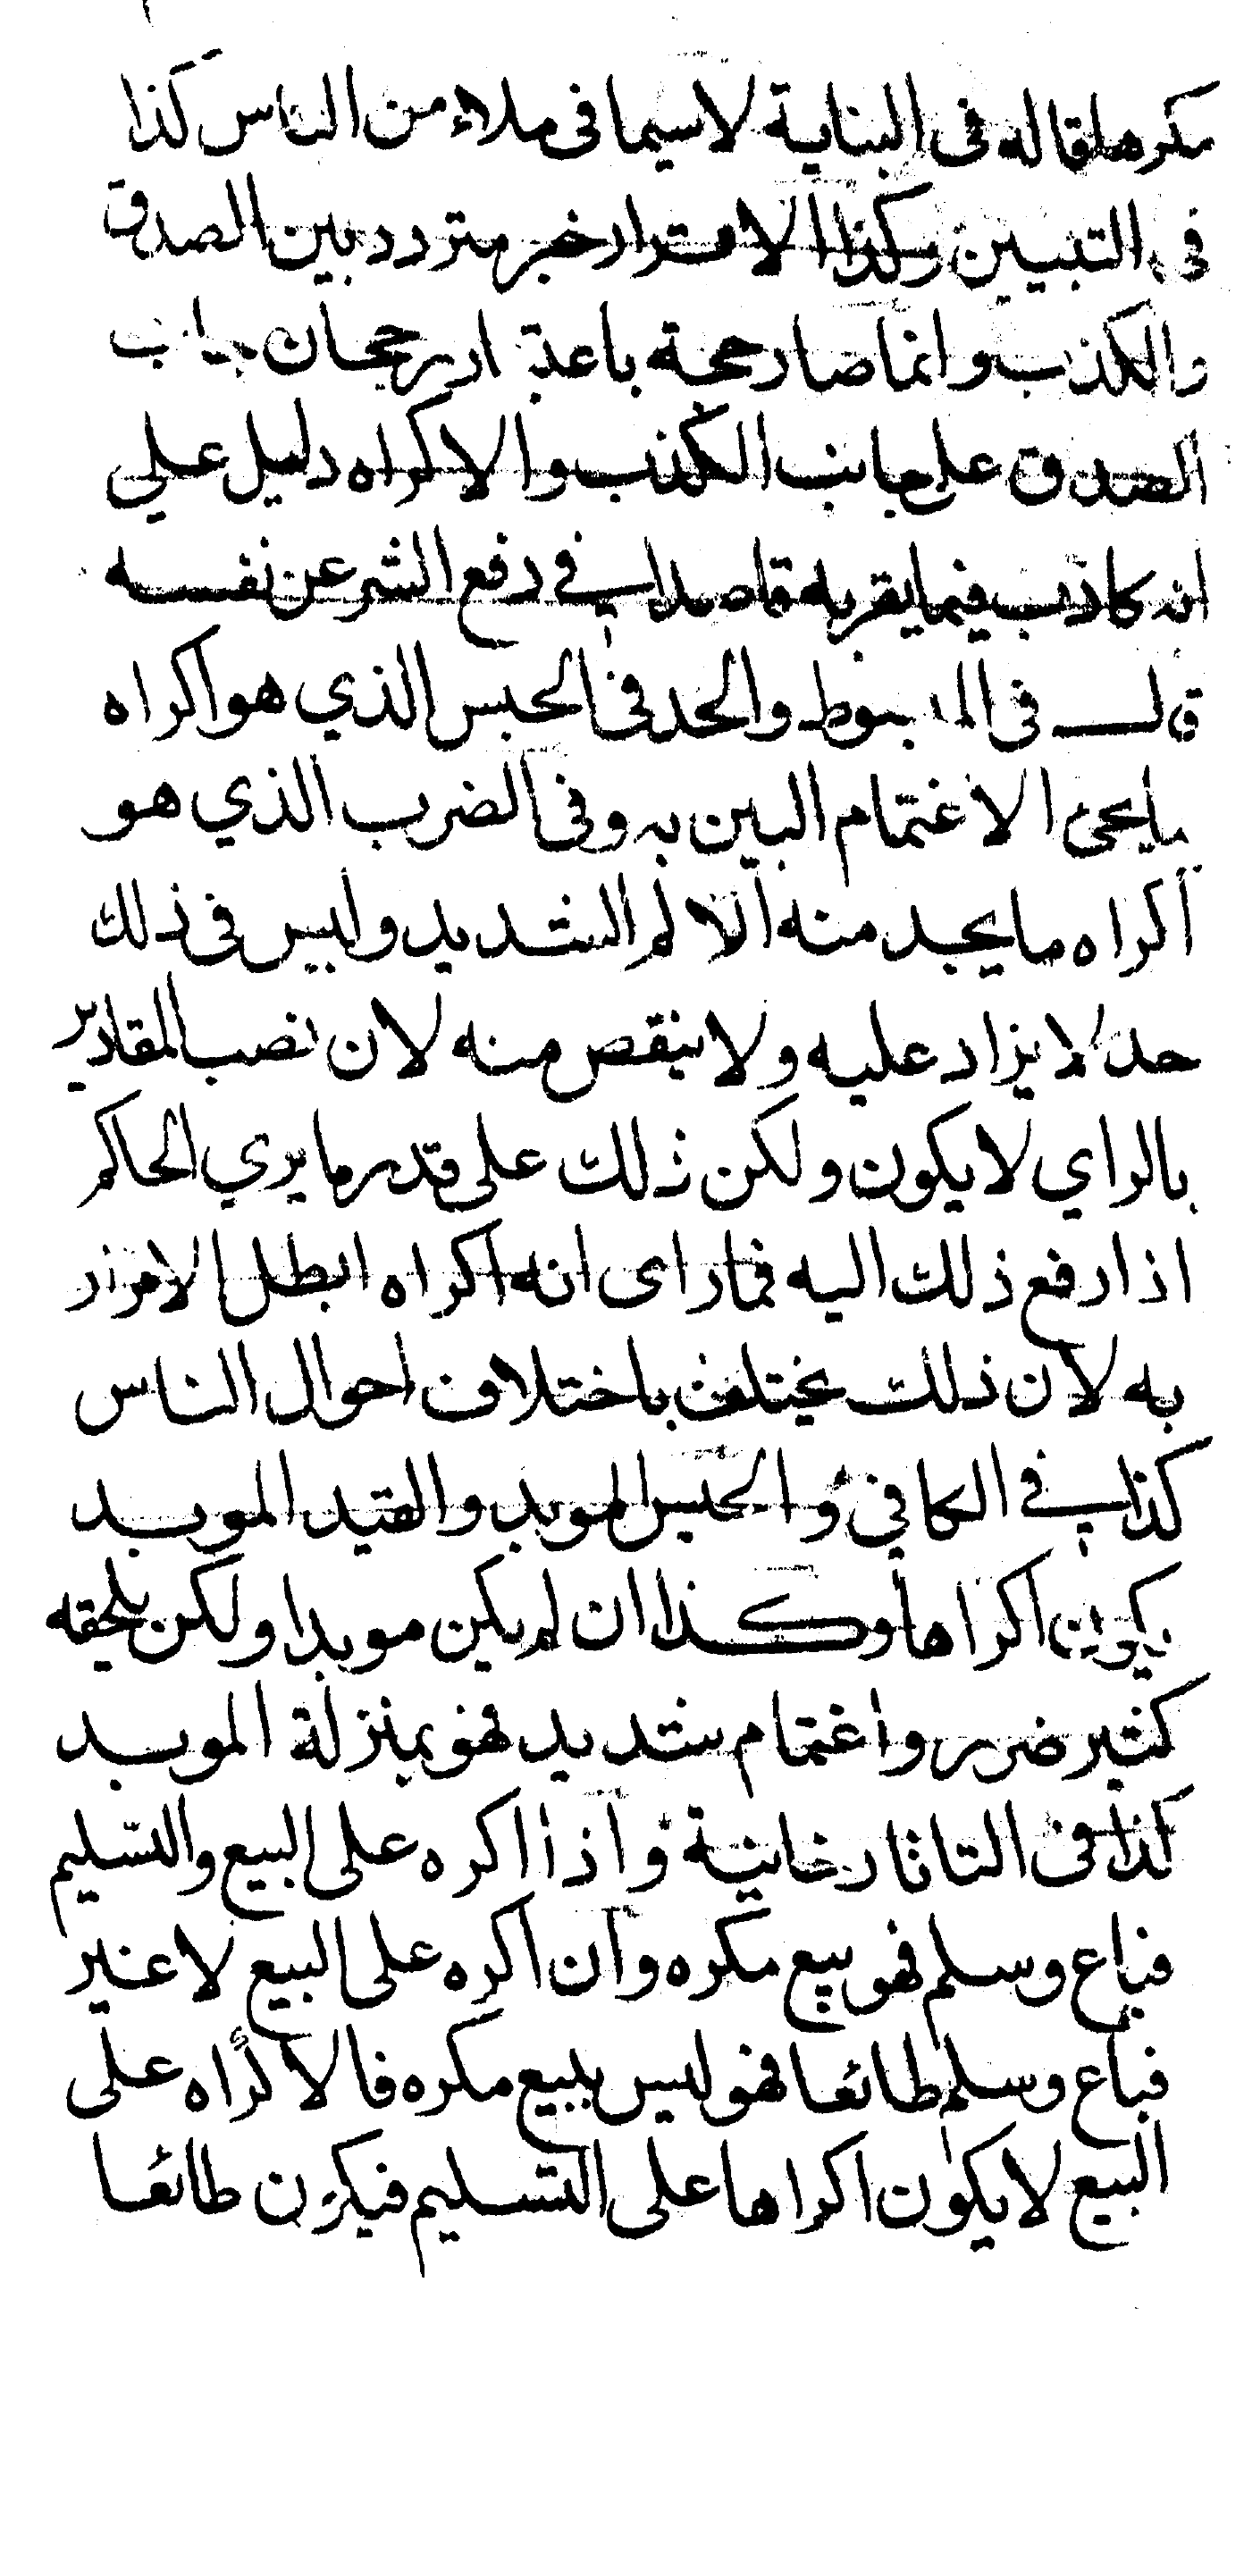 مكرها قاله فى البناية لاسيما فى ملاء من الناس كذا
فى التبيين وكذا الاقرار خبر متردد بين الصدق
والكذب وانما صار حجة باعتبار رجحان جانب
الصدق على جانب الكذب والاكراه دليل على
انه كاذب فيما يقر به قاصدا في دفع الشر عن نفسه
قال فى المبسوط والحد فى الحبس الذي هو اكراه
مايجئ الاغتمام البين به وفى الضرب الذي هو
اكراه ما يجد منه الالم الشديد وليس فى ذلك
حد لا يزاد عليه ولا ينقص منه لان نصب المقادير
بالراي لا يكون ولكن ذلك على قدر ما يري الحاكم
اذا رفع ذلك اليه فما راى انه اكراه ابطل الاقرار
به لان ذلك يختلف باختلاف احوال الناس
كذا في الكافي والحبس الموبد والقيد الموبد
يكون اكراها وكذا ان لم يكن موبدا ولكن يلحقه
كثير ضرر واغتمام شديد فهو بمنزلة الموبد
كذا فى التاتارخانية واذا اكره على البيع والتسليم
فباع وسلم فهو بيع مكره وان اكره على البيع لا غير
فباع وسلم طائعا فهو ليس ببيع مكره فالاكراه على
البيع لا يكون اكراها على التسليم فيكون طائعا